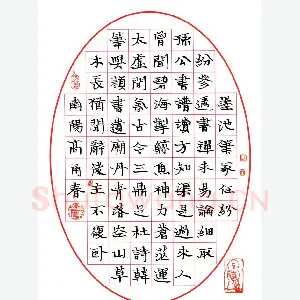 墨池筆冢任紛
紛參透書禪未易論細取
孫公書譜讀方知渠是過來人
曾聞碧海掣鯨魚神力蒼茫運
太虛間氣古今三鼎足杜詩韓
筆與顏書遺廟丹青落空山草
木長猶聞辭後主不復卧
南陽高雨春